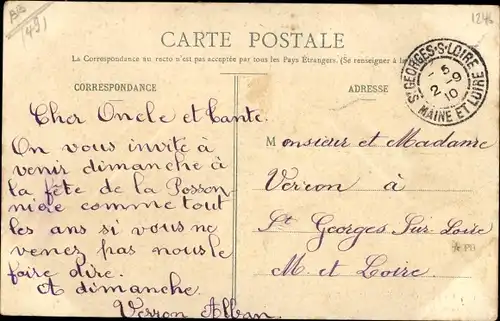 BB
(49)
1246
CARTE POSTALE
La Correspondance au recto n'est pas acceptée par tous les Pays Étrangers. (Se renseigner à la
CORRESPONDANCE
ADRESSE
St GEORGES-S-LOIRE
5 - 9
2 10
MAINE ET LOIRE
Cher Oncle et tante.
On vous invite à
venir dimanche à
la fête de la Posson
niere comme tout
les ans si vous ne
venez pas nous le
faire dire.
A dimanche.
Verron Alban.
Monsieur et Madame
Verron à
St Georges Sur Loire
M. et Loire.